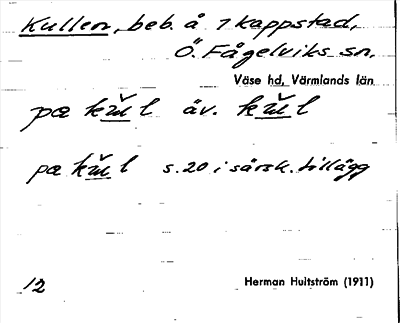 Kullen, beb. å 7 kappstad,
Ö. Fågelviks sn.
Väse hd, Värmlands län
pæ kŭl äv. kŭl
pæ kŭl s. 20 i särsk. tillägg
12 Herman Hultström (1911)